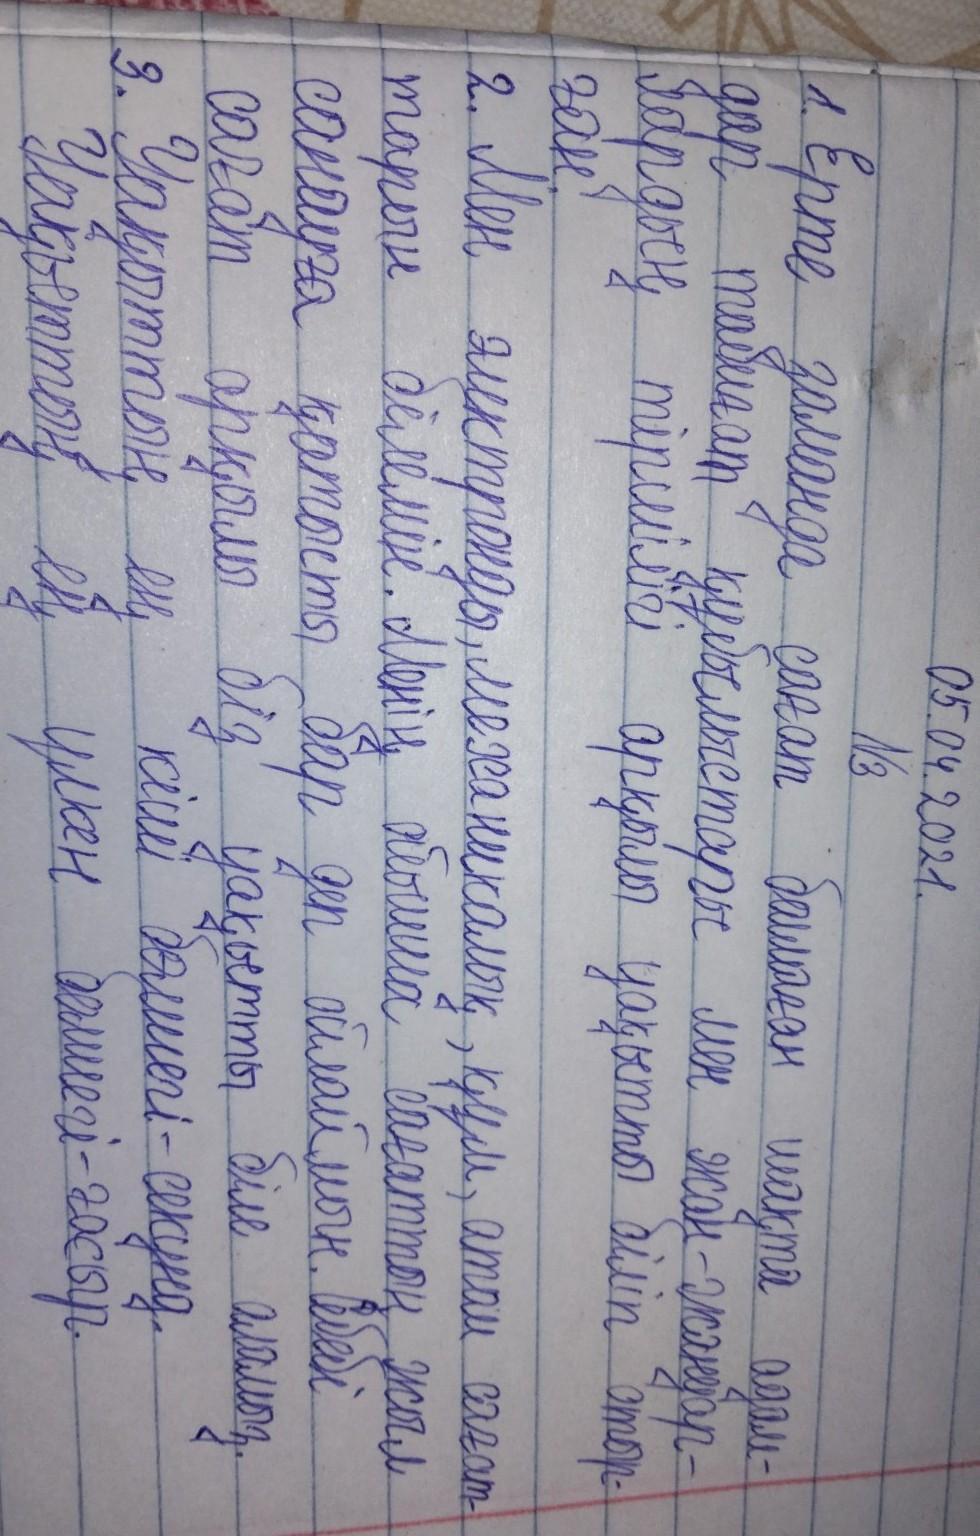 05.04.2021.
№3
1. Ерте заманда сағат болмаған шақта адам-
дар табиғат құбылыстары мен жан-жануар-
лардың тіршілігі арқылы уақытты біліп отыр-
ған.
2. Мен электронды, механикалық, құм, атом сағат-
тарын білемін. Менің ойымша сағаттың жыл
санауға қатысты бар деп ойлаймын. Себебі
сағат арқылы біз уақытты біле аламыз.
3. Уақыттың ең кіші бөлшегі-секунд.
Уақыттың ең үлкен бөлшегі-ғасыр.